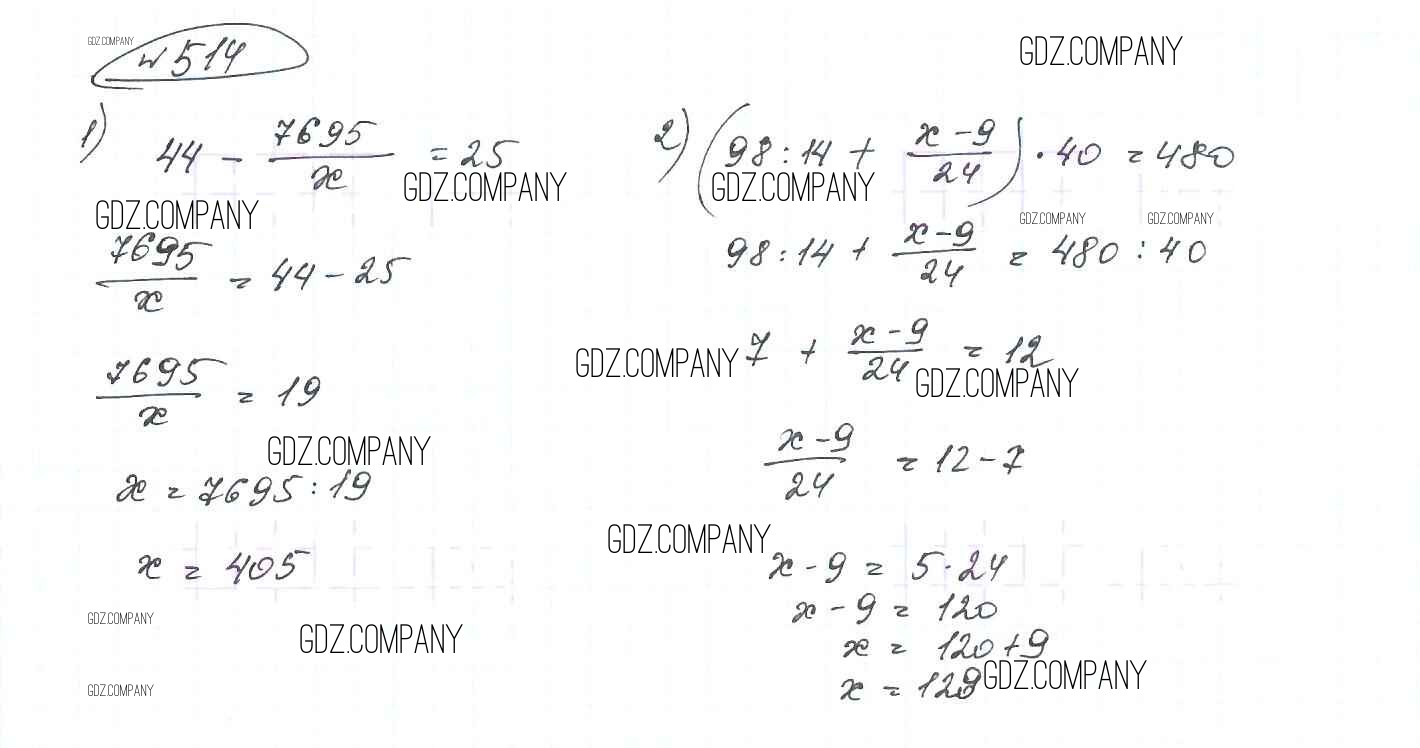 GDZ.COMPANY
№ 514
GDZ.COMPANY
1) 44 - 7695/x = 25
GDZ.COMPANY
GDZ.COMPANY
7695/x = 44 - 25
7695/x = 19
GDZ.COMPANY
x = 7695 : 19
x = 405
GDZ.COMPANY
GDZ.COMPANY
GDZ.COMPANY
2) (98 : 14 + x-9/24) · 40 = 480
GDZ.COMPANY
GDZ.COMPANY GDZ.COMPANY
98 : 14 + x-9/24 = 480 : 40
7 + x-9/24 = 12
GDZ.COMPANY
GDZ.COMPANY
x-9/24 = 12 - 7
GDZ.COMPANY
x - 9 = 5 · 24
x - 9 = 120
x = 120 + 9
x = 129
GDZ.COMPANY